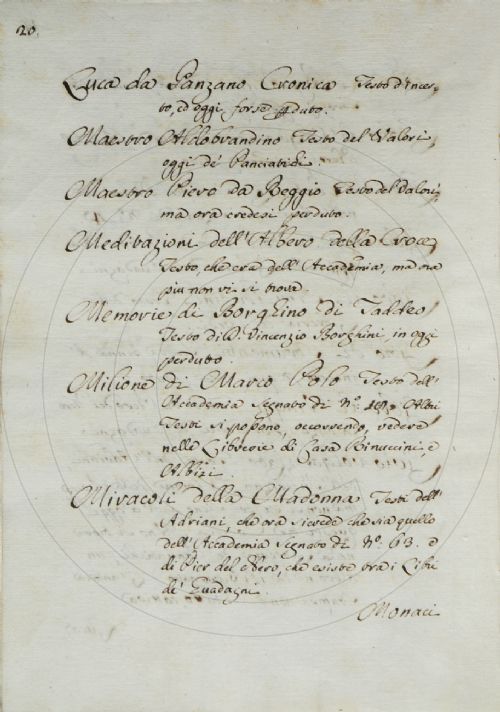 20.
Luca da Panzano Cronica Testo d'incer-
to, ed oggi forse pduto.
Maestro Aldobrandino Testo del Valori,
oggi de' Panciatichi.
Maestro Piero da Reggio Testo del Valori,
ma ora credesi perduto.
Meditazioni dell'Albero della Croce
Testo, che era dell'Accademia, ma ora
più non vi si trova.
Memorie di Borghino di Taddeo
Testo di D. Vincenzio Borghini, in oggi
perduto.
Milione di Marco Polo Testo dell'
Accademia segnato di N.º Altri
Testi si possono, occorrendo, vedere
nelle Librerie di Casa Rinuccini, e
Albizi.
Miracoli della Madonna Testi dell'
Adriani, che ora si crede che sia quello
dell'Accademia segnato di Nº. 63. e
di Pier del Nero, che esiste ora i Libri
de' Guadagni.
Monaci